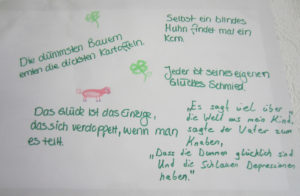 Die dümmsten Bauern
ernten die dicksten Kartoffeln.
Selbst ein blindes
Huhn findet mal ein
Korn.
Jeder ist seines eigenen
Glückes Schmied.
Das Glück ist das Einzige,
das sich verdoppelt, wenn man
es teilt.
„Es sagt viel über
die Welt aus mein Kind,
sagte der Vater zum
Knaben,
„Dass die Dummen glücklich sind
Und die Schlauen Depressionen
haben."